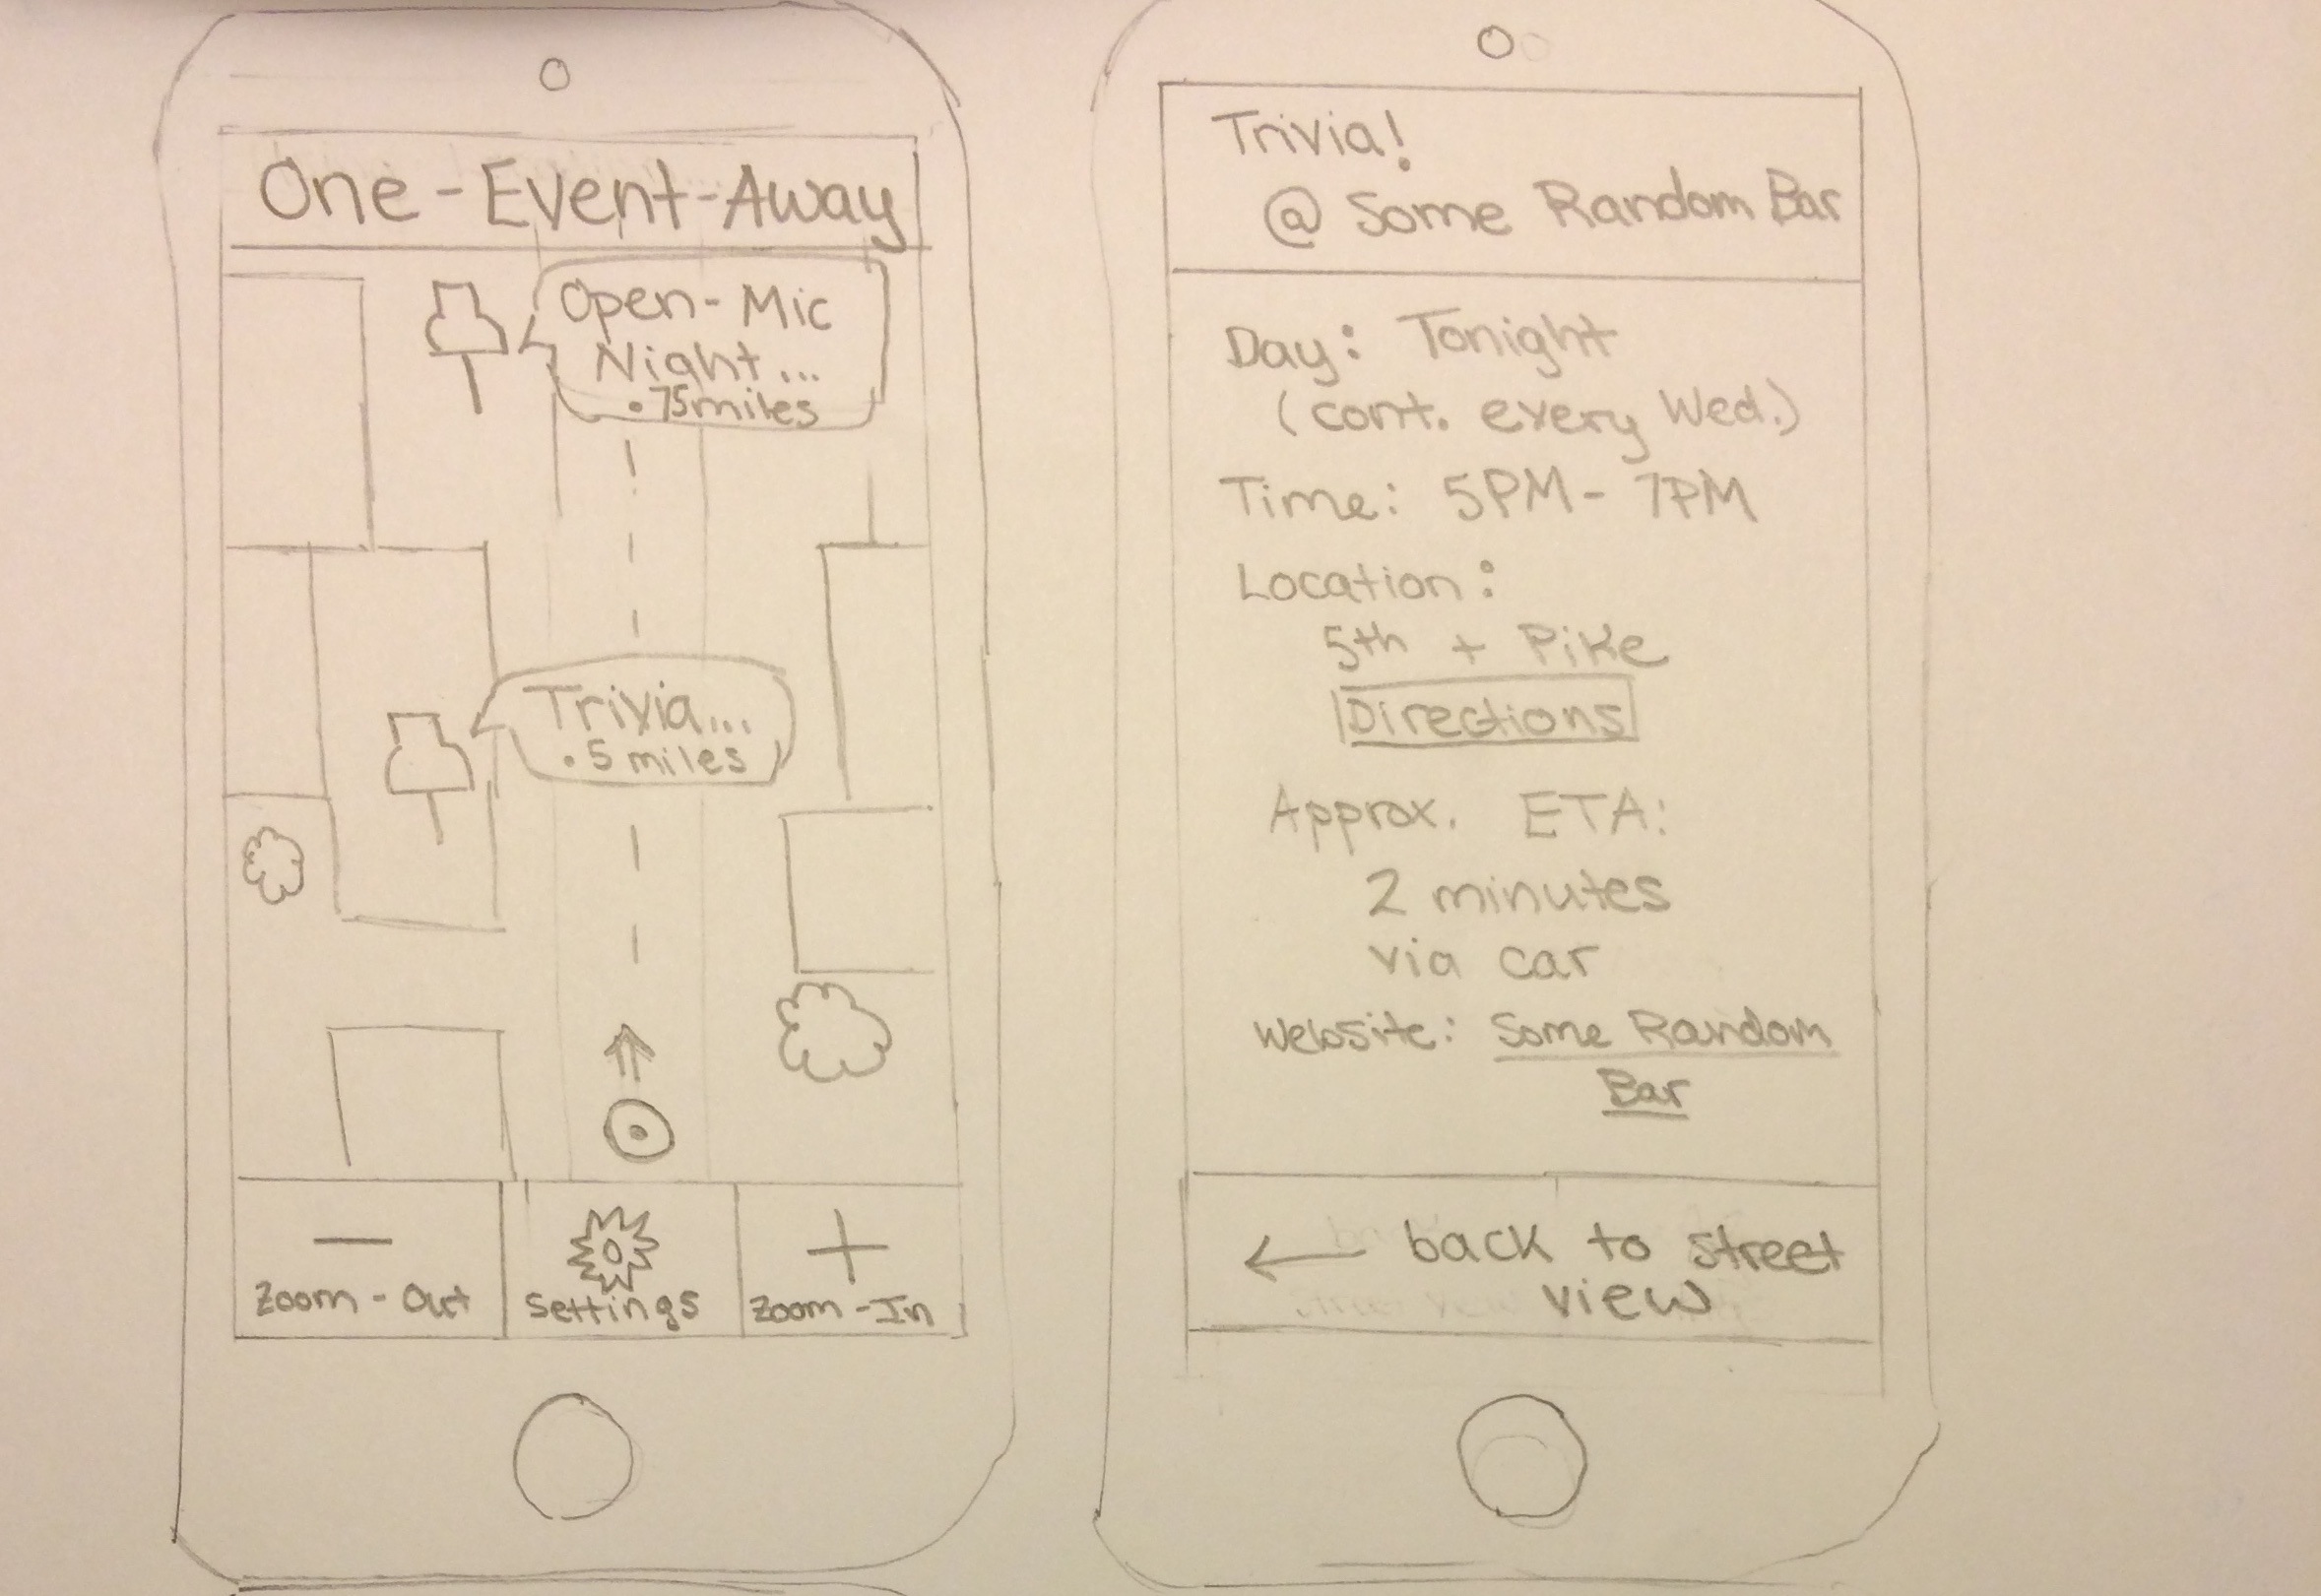 One-Event-Away
Open-Mic
Night...
.75miles
Trivia...
.5 miles
Zoom-Out
Settings
Zoom-In
Trivia!
@ Some Random Bar
Day: Tonight
(cont. every Wed.)
Time: 5PM- 7PM
Location:
5th + Pike
Directions
Approx. ETA:
2 minutes
via car
Website: Some Random
Bar
← back to street
view